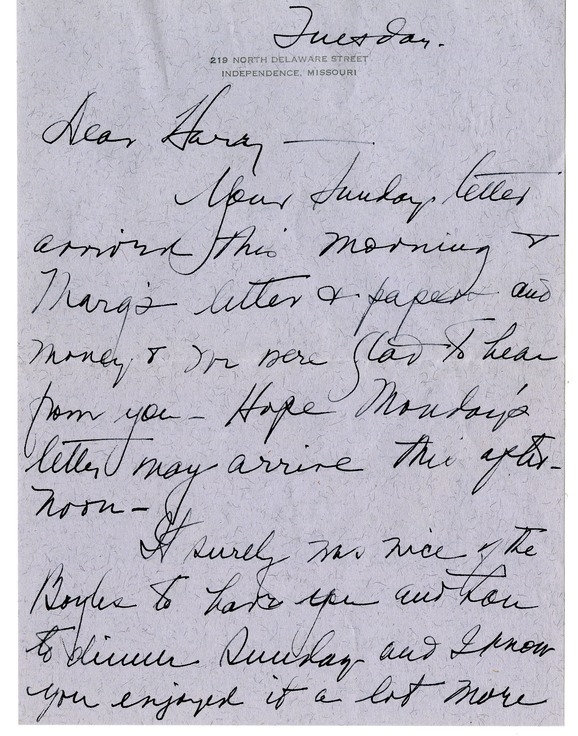 Tuesday.
219 NORTH DELAWARE STREET
INDEPENDENCE, MISSOURI
Dear Harry —
Your Sunday letter
arrived this morning &
Marg's letter & paper and
money & we were glad to hear
from you — Hope Monday's
letter may arrive this after-
noon —
It surely was nice of the
Boyles to have you and Lou
to dinner Sunday and I know
you enjoyed it a lot more